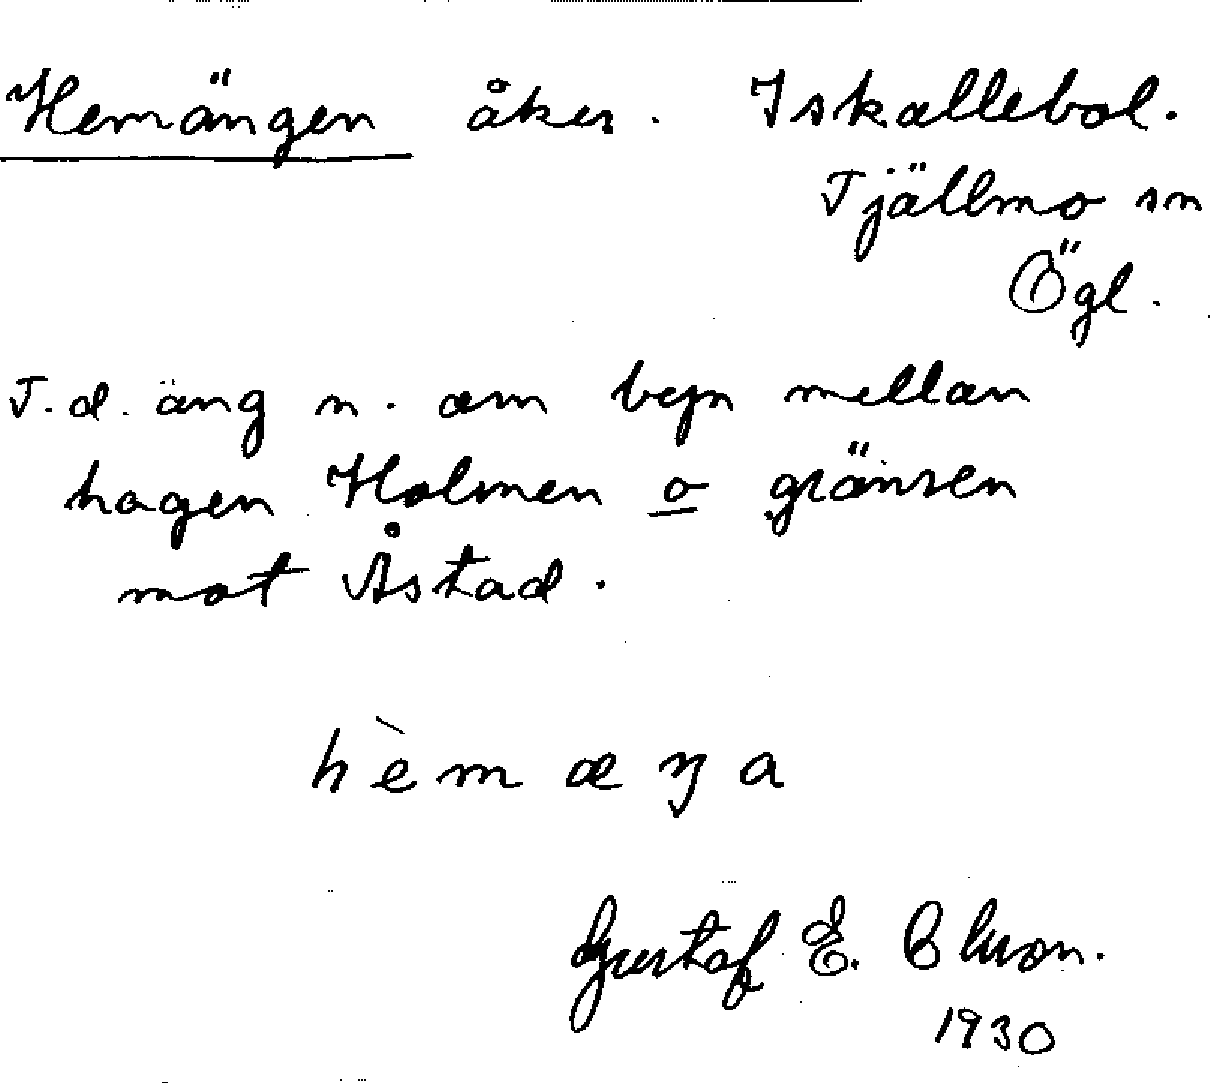 Hemängen åker. Iskallebol.
Tjällmo sn
Ögl.
T.d. äng n. om byn mellan
hagen Holmen o gränsen
mot Åstad.
hèmæŋa
Gustaf E.
1930